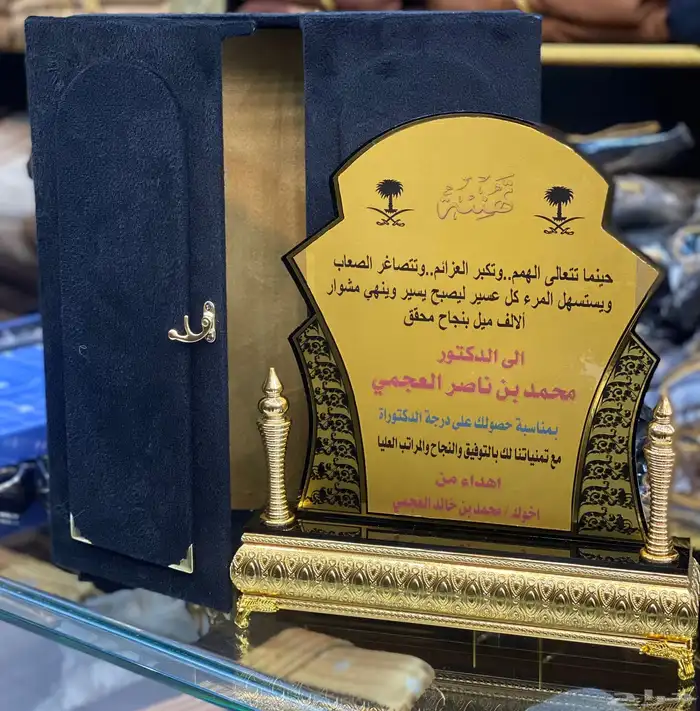 تهنئة
حينما تتعالى الهمم..وتكبر العزائم..وتتصاغر الصعاب
ويستسهل المرء كل عسير ليصبح يسير وينهي مشوار
ألالف ميل بنجاح محقق
الى الدكتور
محمد بن ناصر العجمي
بمناسبة حصولك على درجة الدكتوراة
مع تمنياتنا لك بالتوفيق والنجاح والمراتب العليا
اهداء من
اخوك / محمد بن خالد العجمي
حراج